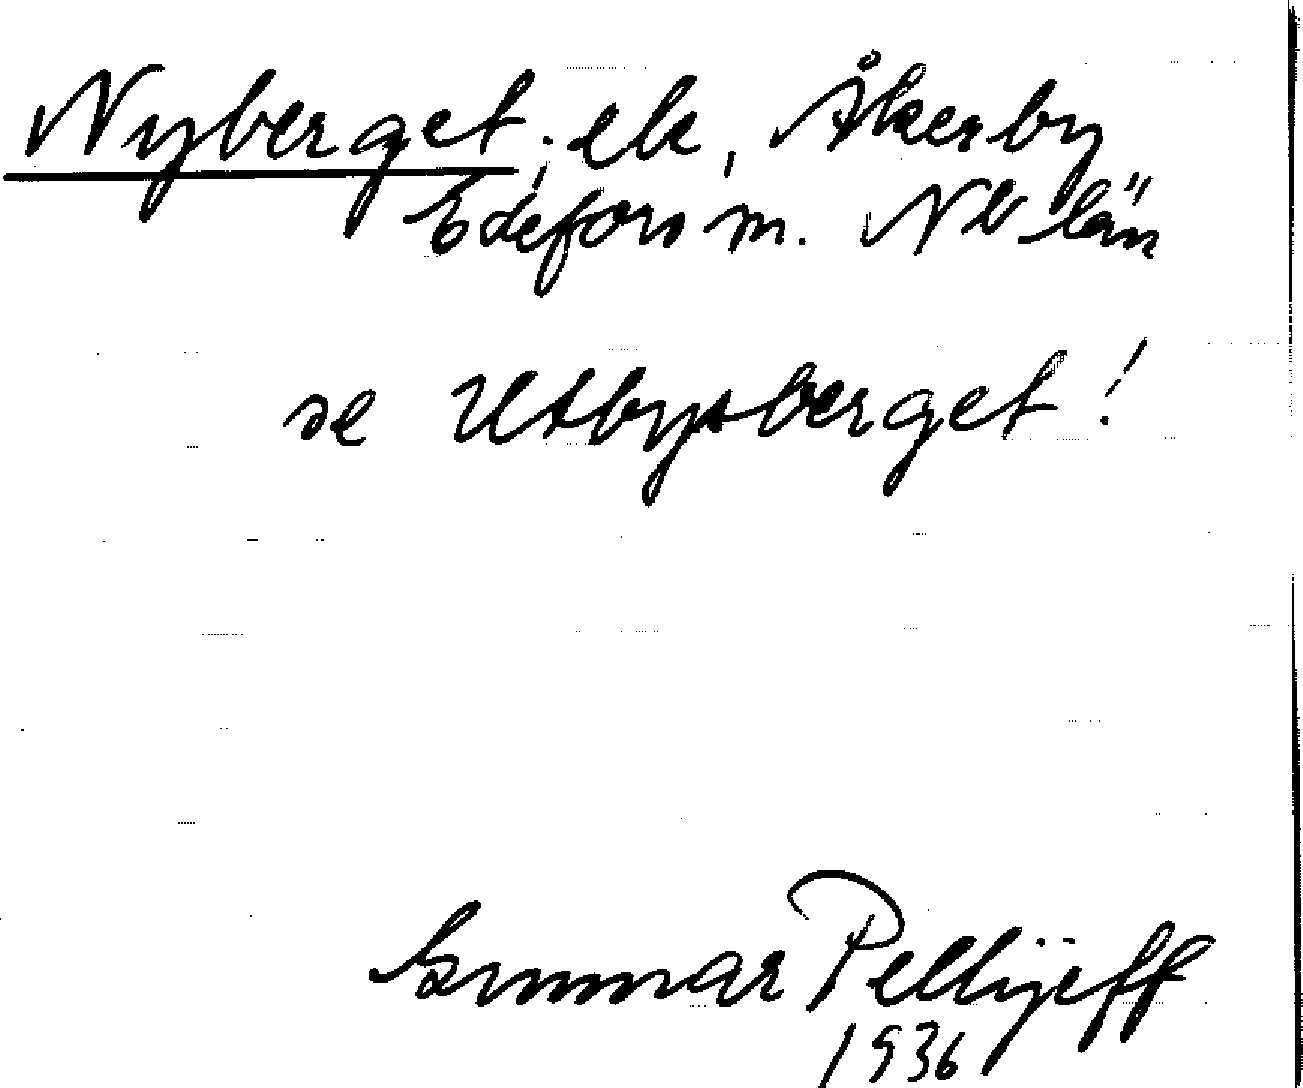 Nyberget; elr, Åkerby
Edefors sn. Nb län
se Utbysberget!
Gunnar Pellijeff
1936